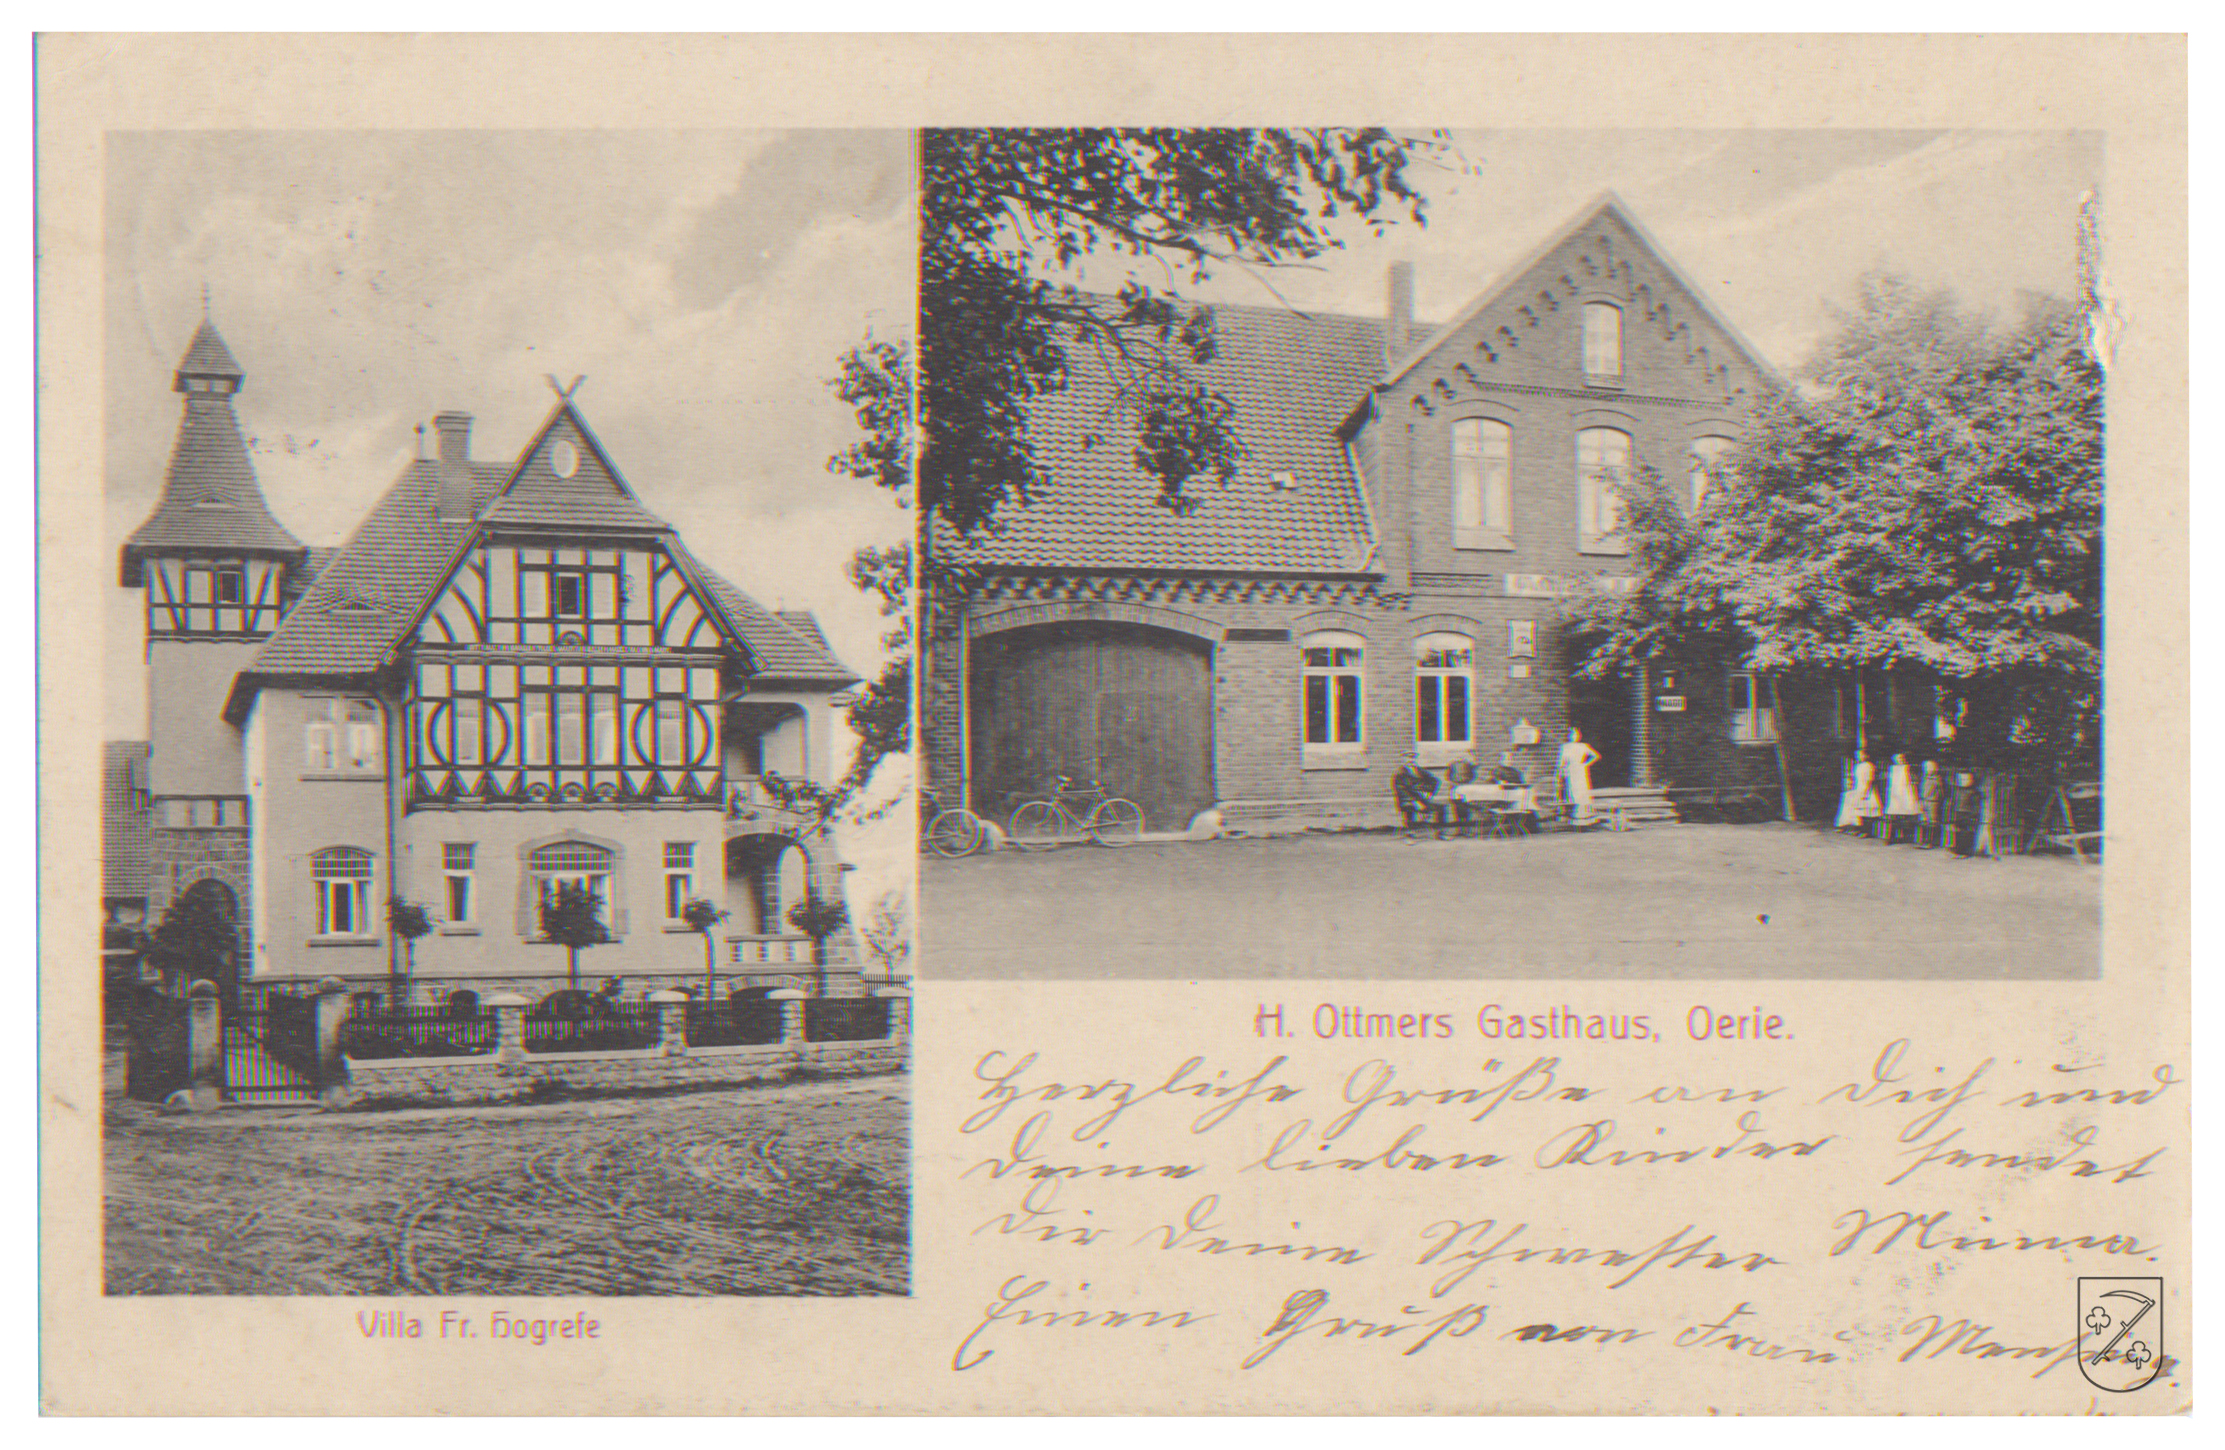 Villa Fr. Hogrefe
H. Ottmers Gasthaus, Oerie.
Herzliche Grüße an Dich und
Deine lieben Kinder sendet
Dir Deine Schwester Minna.
Einen Gruß von Frau Mensing.